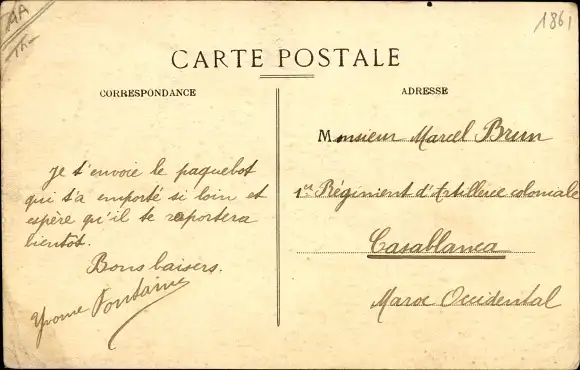 MA
1861
CARTE POSTALE
CORRESPONDANCE
Je t'envoie le paquebot
qui t'a emporté si loin et
espère qu'il te raportera
bientot.
Bons baisers.
Yvonne Fontaine
ADRESSE
Monsieur Marcel Brun
1er Régiment d'Artillerie coloniale
Casablanca
Maroc Occidental